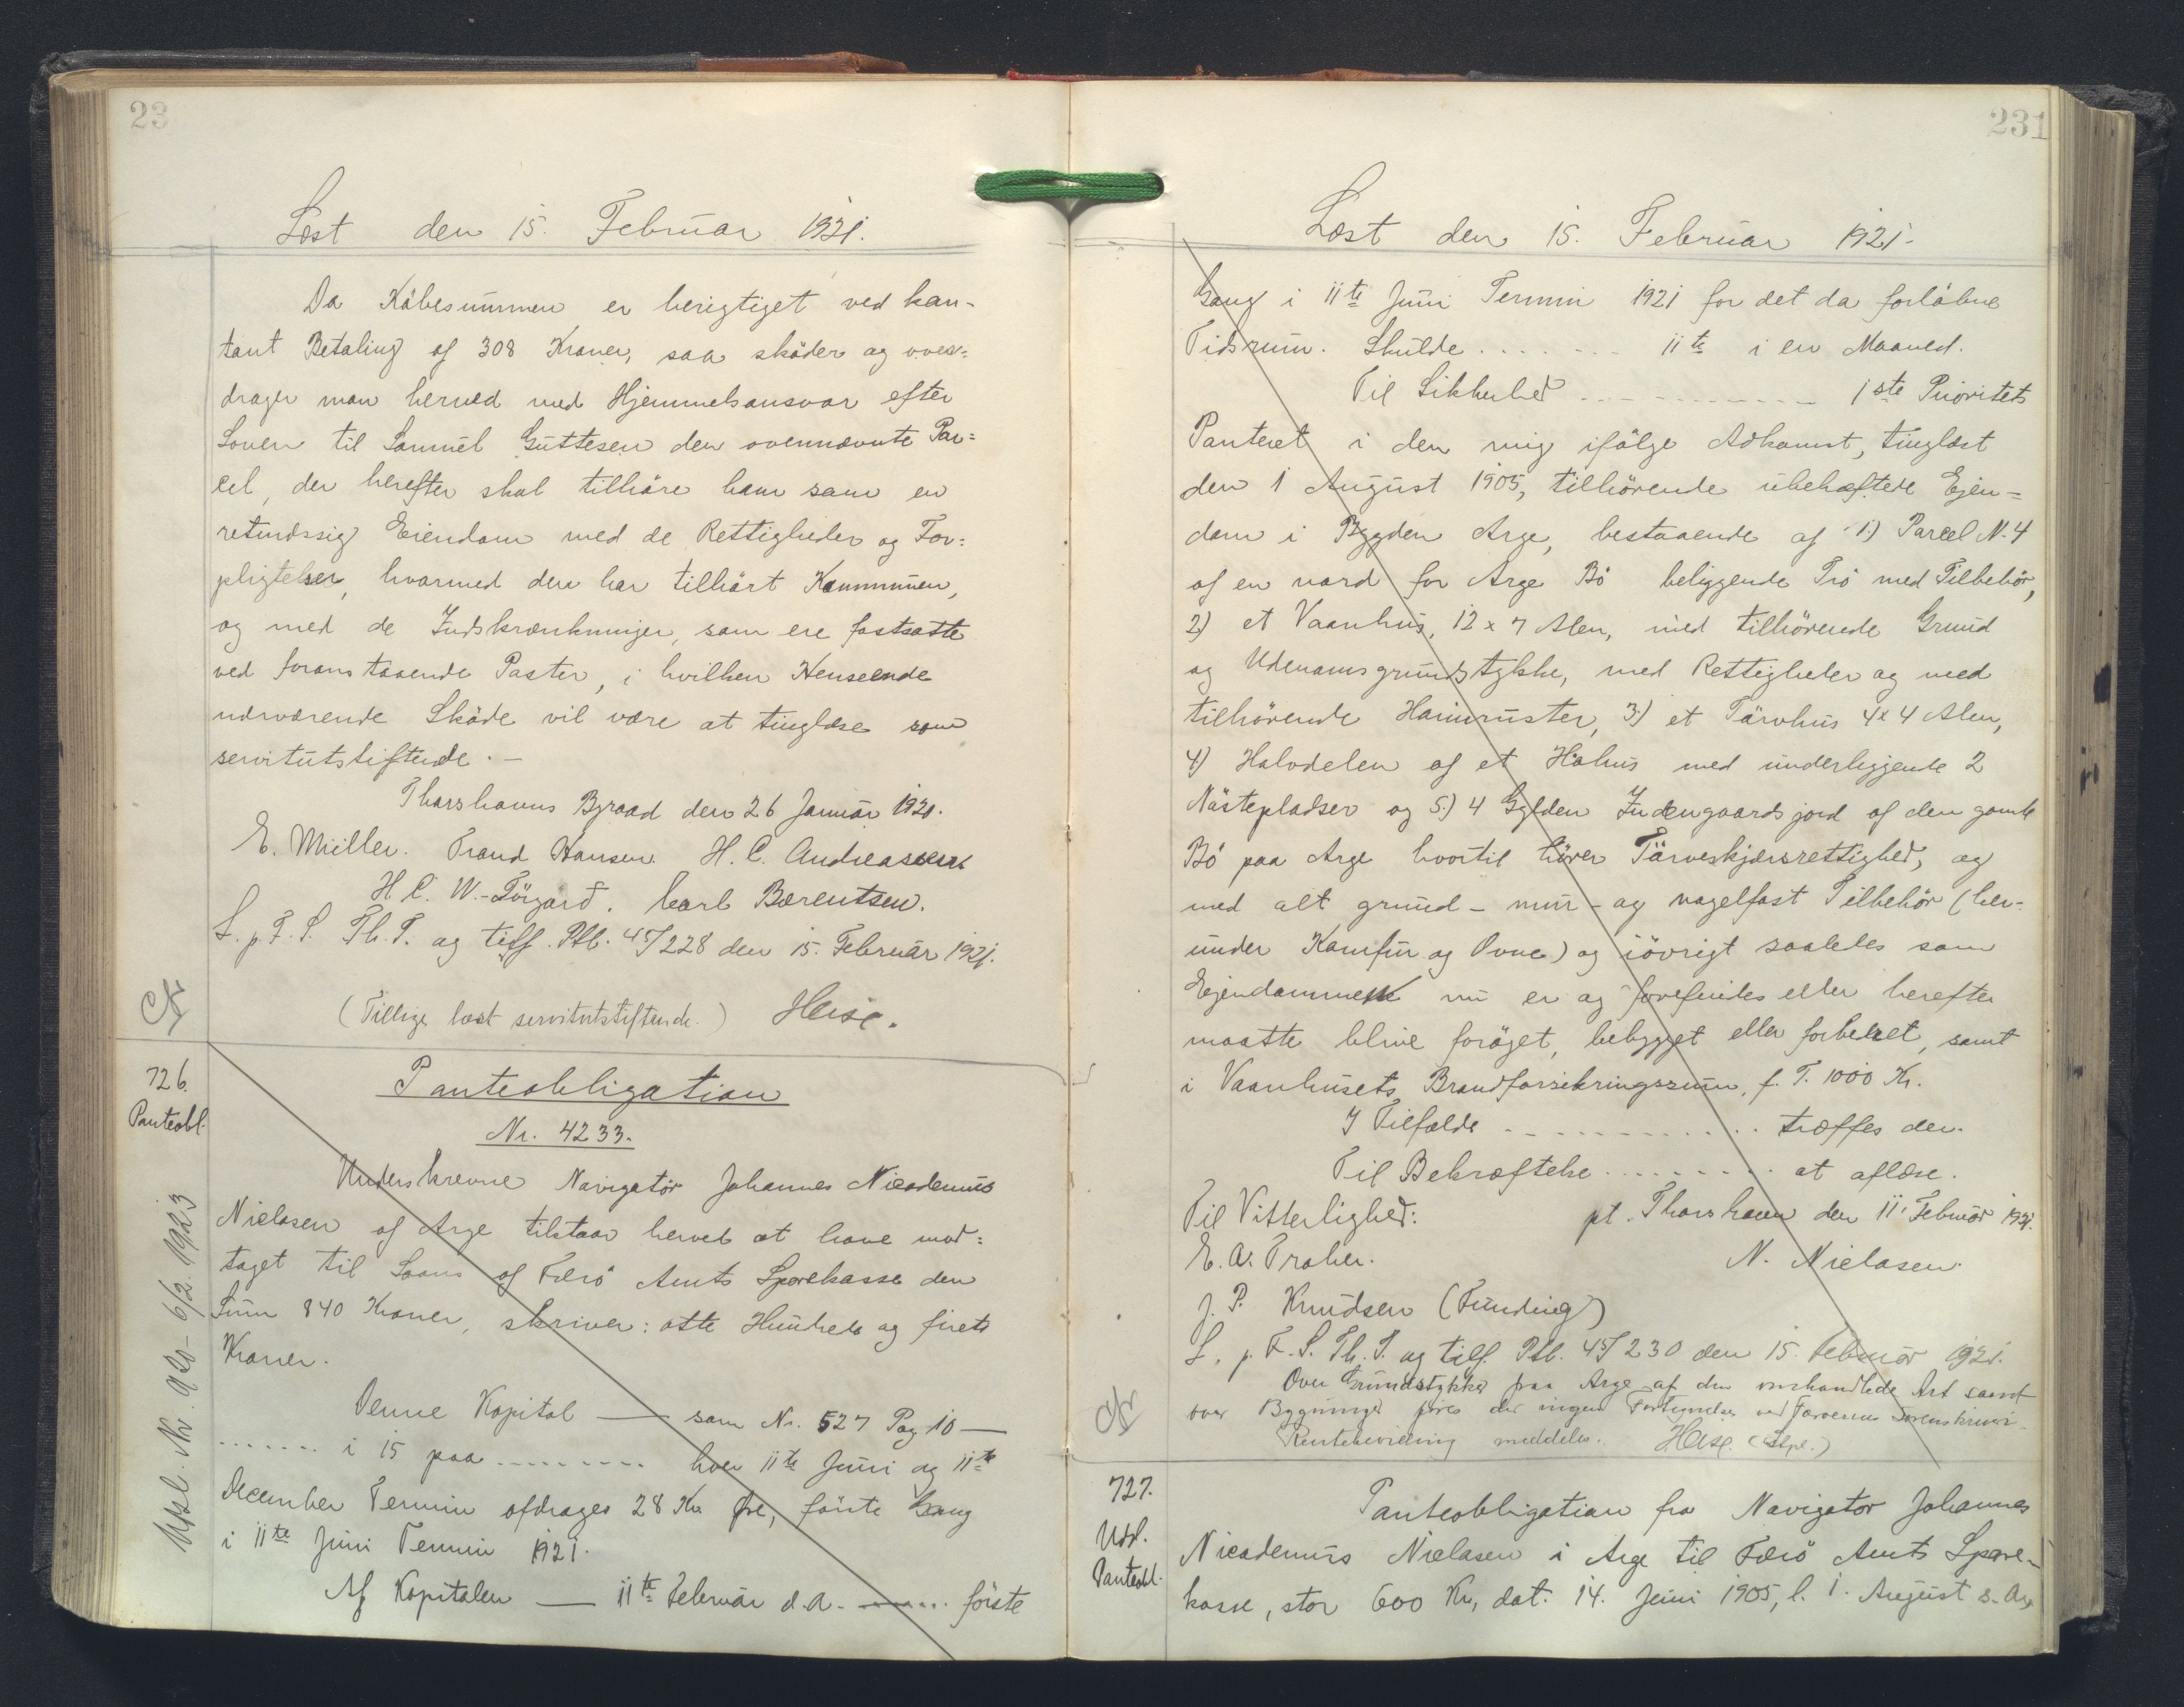 23
Læst den 15. Februar 1921.
Da Købesummen er berigtiget ved kon-
tant Betaling af 308 Kroner, saa skøder og over=
drager man herved med Hjemmelsansvar efter
Loven til Samuel Guttesen den ovennævnte Par=
cel, der herefter skal tilhøre ham som en
retmæssig Eiendom med de Rettigheder og For=
pligtelser, hvormed den har tilhørt Kommunen,
og med de Indskrænkninger, som ere fastsatte
ved foranstaaende Poster, i hvilken Henseende
nærværende Skøde vil være at tinglæse som
servitutstiftende. -
Thorshavns Byraad den 26 Januar 1921.
E. Müller. Trond Hansen. H. C. Andreasen.
H. C. W.-Tórgarð. Carl Bærentsen.
L. p. F. S. Th. T. og tilf. Ptb. 45/228 den 15. Februar 1921.
(Tillige læst servitutstiftende.) Heise.
Cfr
726.
Panteobl.
Panteobligation
Nr. 4233.
Underskrevne Navigatør Johannes Nicodemus
Nielasen af Arge tilstaar herved at have mod=
taget til Laans af Færø Amts Sparekasse den
Sum 840 Kroner, skriver: otte Hundrede og fireti
Kroner.
Denne Kapital — som Nr. 527 Pag 10 —
....... i 15 paa ......... hver 11te Juni og 11te
December Termin afdrages 28 Kr. Øre, første Gang
i 11te Juni Termin 1921.
Af Kapitalen — 11te Februar d.A. ....... første
Afl. Nr. 920 - 6/2. 1923
231
Læst den 15. Februar 1921.
Gang i 11te Juni Termin 1921 for det da forløbne
Tidsrum. Skulde ....... 11te i en Maaned.
Til Sikkerhed ............ 1ste Prioritets
Panteret i den mig ifølge Adkomst, tinglæst
den 1 August 1905, tilhørende ubehæftede Ejen=
dom i Bygden Arge, bestaaende af 1) Parcel N. 4
af en nord for Arge Bø beliggende Trø med Tilbehør,
2) et Vaanhus, 12 x 7 Alen, med tilhørende Grund
og Udenomsgrundstykke, med Rettigheder og med
tilhørende Hainruster, 3) et Tørvhus 4x4 Alen,
4) Halvdelen af et Høhus med underliggende 2
Nøstepladser og 5.) 4 Gylden Indengaardsjord af den gamle
Bø paa Arge hvortil hører Tørveskjærsrettighed, og
med alt grund- mur- og nagelfast Tilbehør (her-
under Komfur og Ovne) og iøvrigt saaledes som
Ejendommen nu er og forefindes eller herefter
maatte blive forøget, bebygget eller forbedret, samt
i Vaanhusets Brandforsikringssum, f. T. 1000 Kr.
I Tilfælde ............ træffes den.
Til Bekræftelse ......... at aflæse.
Til Vitterlighed: pt. Thorshavn den 11 Februar 1921.
E. A. Trolier. N. Nielasen.
J. P. Knudsen (Funding)
L. p. F. S. Th. T. og tilf. Ptb. 45/230 den 15. Februar 1921.
Over Grundstykker paa Arge af den omhandlede Art samt
over Bygninger føres der ingen Fortegnelse ved Færøernes Sorenskriveri.
Rentebevilling meddeles. Heise. (Stpl.)
Cfr
727.
Udsl.
Panteobl.
Panteobligation fra Navigatør Johannes
Nicodemus Nielasen i Arge til Færø Amts Spare-
kasse, stor 600 Kr., dat. 14. Juni 1905, l. 1. August s. A.